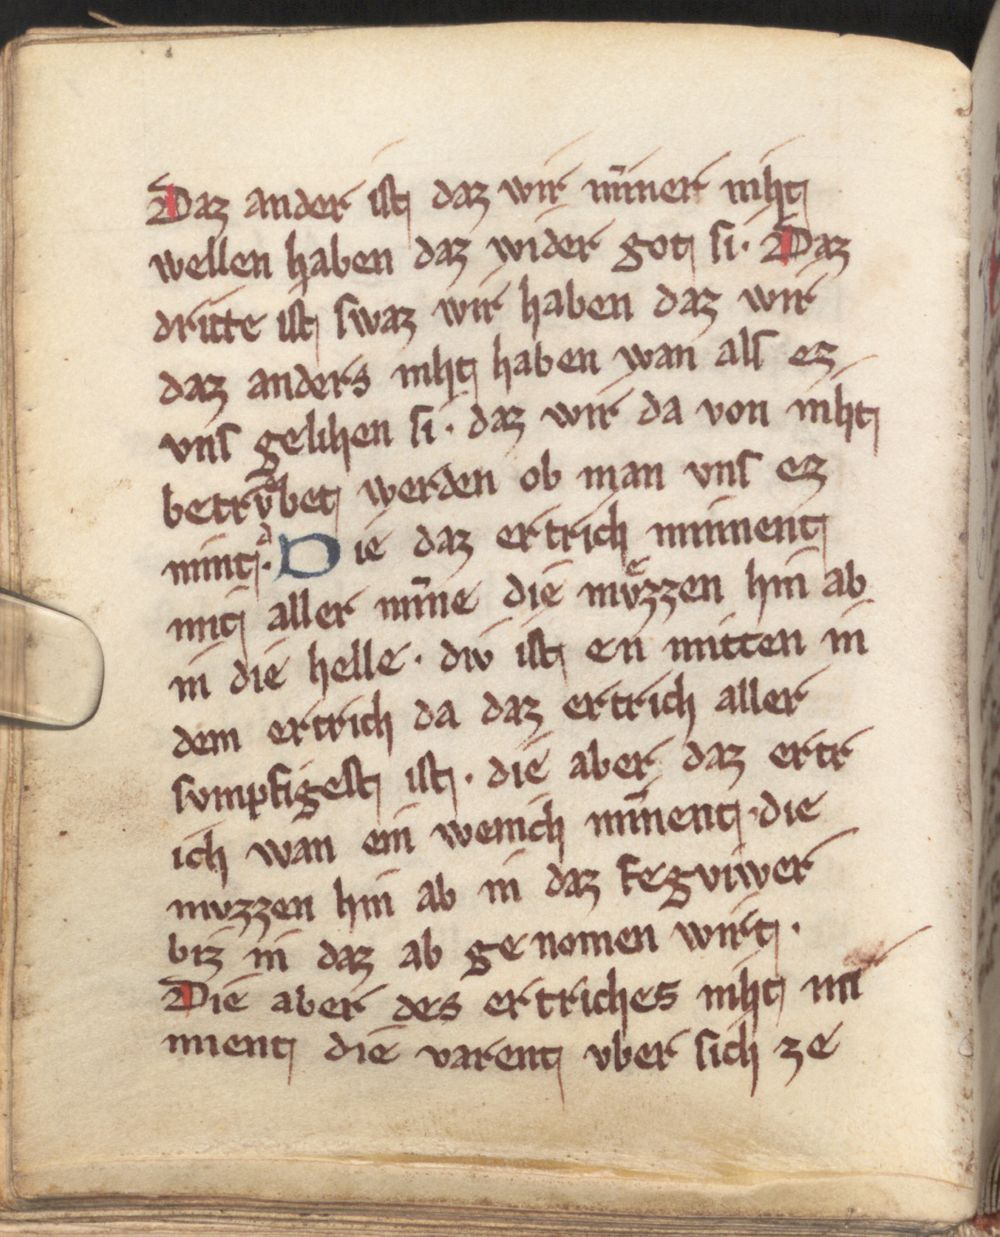 Daz ander ist daz wir nim̄er niht
wellen haben daz wider got si · Daz
dritte ist swaz wir haben daz wir
daz anders niht haben wan als ez
vns gelihen si · daz wir da von niht
betrv̊bet werden ob man vns ez
nimt · Die daz ertrich minnent
mit aller min̄e die mv̊zzen hin ab
in die helle · div ist en mitten in
dem ertrich da daz ertrich aller
svmpfigest ist · die aber daz ertr
ich wan ein wenich min̄ent · die
mvzzen hin ab in daz fegviwer
biz in daz ab genomen wirt ·
Die aber des ertriches niht mi
nnent die varent vber sich ze